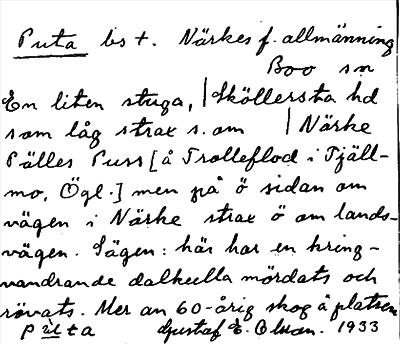 Puta bs t. Närkes f. allmänning
Boo sn
En liten stuga, | Sköllersta hd
som låg strax s. om | Närke
Pälles Puss [å Trolleflod i Tjäll-
mo, Ögl.] men på ö sidan om
vägen i Närke strax ö om lands-
vägen. Sägen: här har en kring-
vandrande dalkulla mördats och
rövats. Mer än 60-årig skog å platsen
pùta Gustaf E. Olsson. 1933